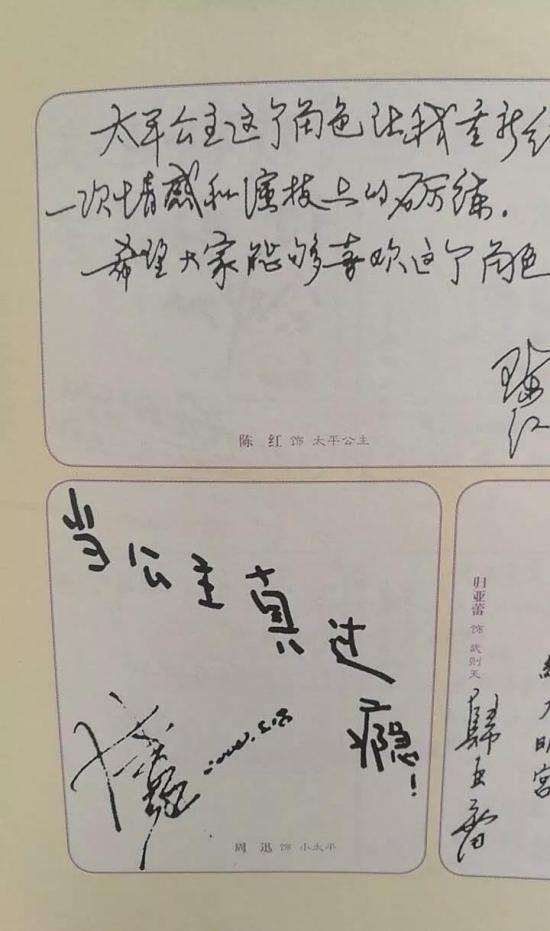 太平公主这个角色让我重新经
一次情感和演技上的砺练.
希望大家能够喜欢这个角色
陈红
陈 红 饰 太平公主
当公主真过瘾!
周 迅 饰 小太平
归亚蕾 饰 武则天
大明宫
歸亞蕾